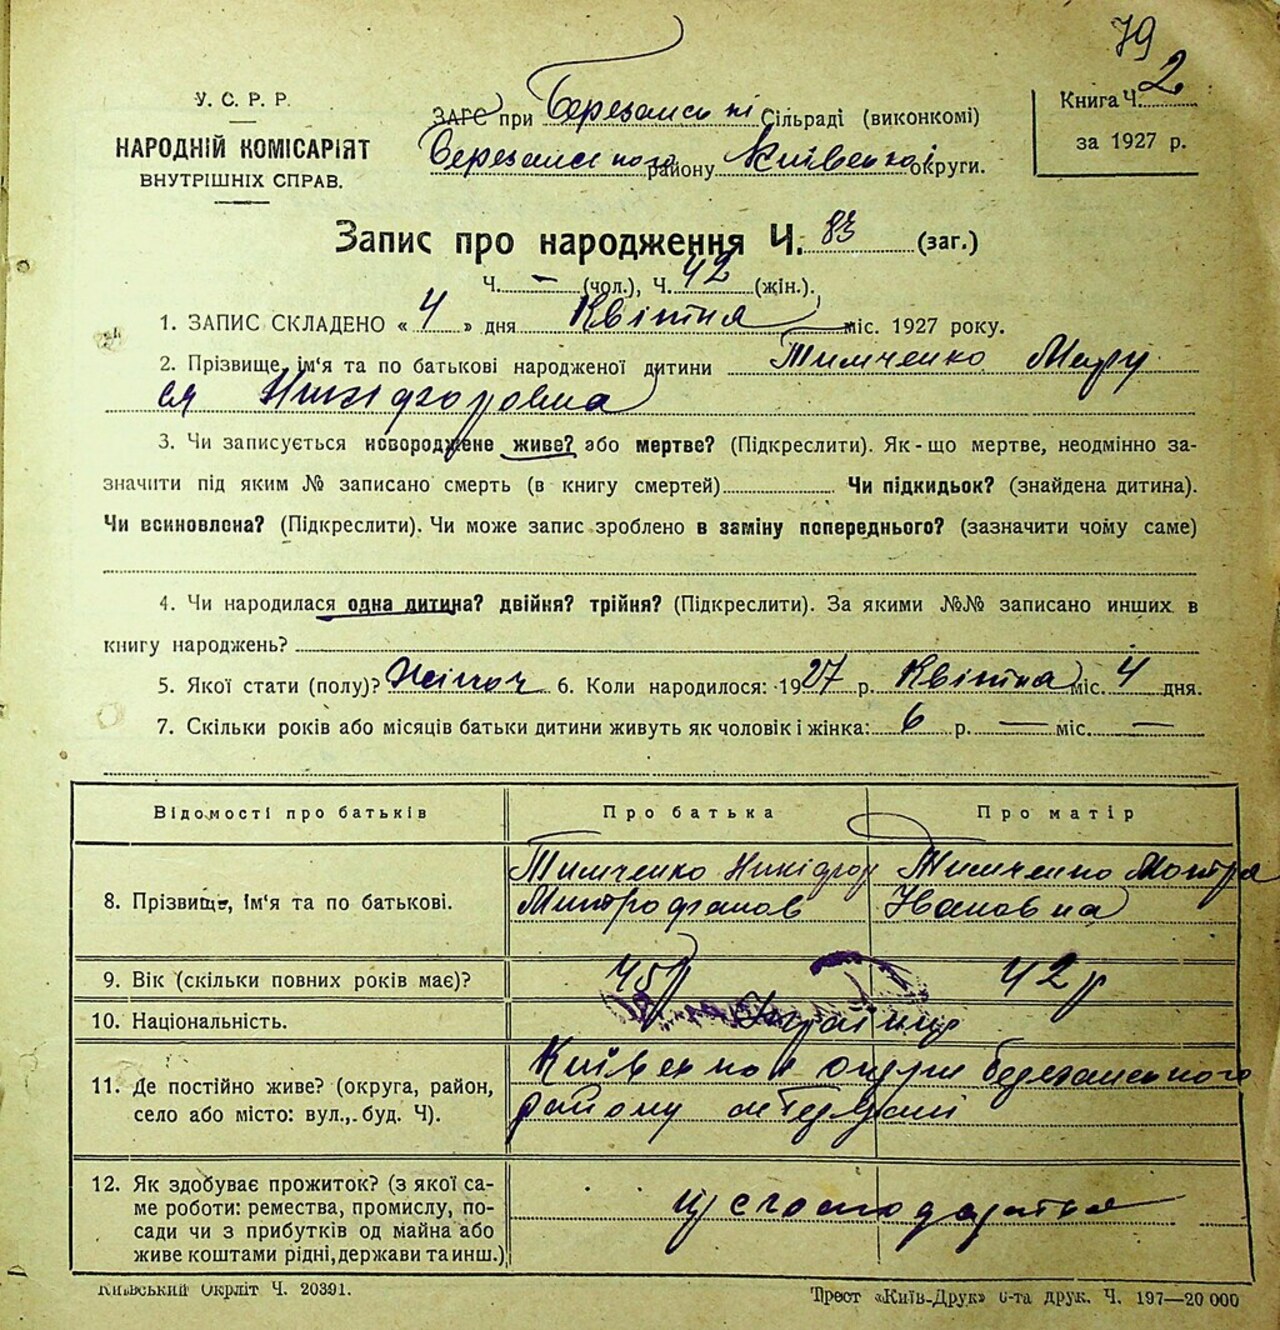 79
У. С. Р. Р.
НАРОДНІЙ КОМІСАРІЯТ
ВНУТРІШНІХ СПРАВ.
ЗАГС при Березанській Сільраді (виконкомі)
Березанського району Київської округи.
Книга Ч. 2
за 1927 р.
Запис про народження Ч. 83 (заг.)
Ч. — (чол.), Ч. 42 (жін.).
1. ЗАПИС СКЛАДЕНО « 4 » дня Квітня міс. 1927 року.
2. Прізвище, ім'я та по батькові народженої дитини Тимченко Мару
ся Никіфоровна
3. Чи записується новороджене живе? або мертве? (Підкреслити). Як-що мертве, неодмінно за-
значити під яким № записано смерть (в книгу смертей) Чи підкидьок? (знайдена дитина).
Чи всиновлена? (Підкреслити). Чи може запис зроблено в заміну попереднього? (зазначити чому саме)
4. Чи народилася одна дитина? двійня? трійня? (Підкреслити). За якими №№ записано инших в
книгу народжень?
5. Якої стати (полу)? Жіноч. 6. Коли народилося: 1927 р. Квітня міс. 4 дня.
7. Скільки років або місяців батьки дитини живуть як чоловік і жінка: 6 р. — міс. —
Відомості про батьків Про батька Про матір
8. Прізвище, ім'я та по батькові. Тимченко Никіфор Тимченко Мотря
Митрофанов Івановна
9. Вік (скільки повних років має)? 45 р 42 р
10. Національність. Українці
11. Де постійно живе? (округа, район,
село або місто: вул., буд. Ч).
Київської округи Березанського
району м Березані
12. Як здобуває прожиток? (з якої са-
ме роботи: ремества, промислу, по-
сади чи з прибутків од майна або
живе коштами рідні, держави та инш.)
господарства
Київський Окрліт Ч. 20391.
Трест «Київ-Друк» 6-та друк. Ч. 197—20 000